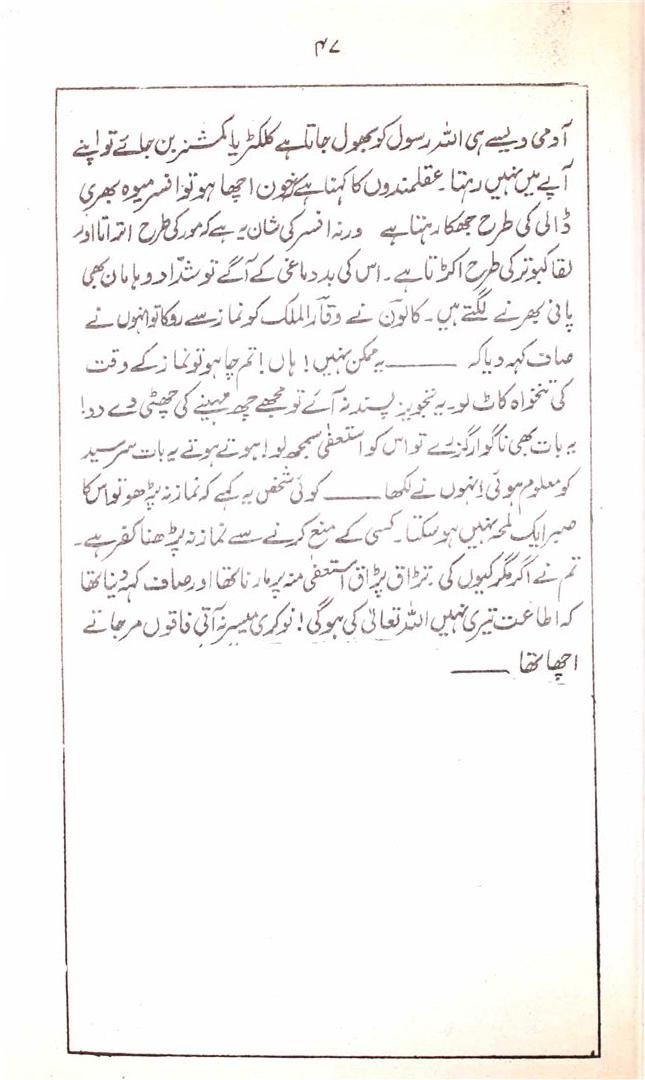 ۴۷
آدمی ویسے ہی اللہ رسول کو بھول جاتا ہے کلکٹر یا کمشنر بن جائے تو اپنے
آپے میں نہیں رہتا۔ عقلمندوں کا کہنا ہے خون اچھا ہو تو افسر میوہ بھری
ڈالی کی طرح جھکا رہتا ہے ورنہ افسر کی شان یہ ہے کہ مور کی طرح اتراتا اور
لقا کبوتر کی طرح اکڑتا ہے۔ اس کی بددماغی کے آگے تو شدّاد و ہامان بھی
پانی بھرنے لگتے ہیں۔ کالون نے وقار الملک کو نماز سے روکا تو انہوں نے
صاف کہہ دیا کہ ——— یہ ممکن نہیں! ہاں! تم چاہو تو نماز کے وقت
کی تنخواہ کاٹ لو۔ یہ تجویز پسند نہ آئے تو مجھے چھ مہینے کی چھٹی دے دو!
یہ بات بھی ناگوار گزرے تو اس کو استعفیٰ سمجھ لو! ہوتے ہوتے یہ بات سرسید
کو معلوم ہوئی! انہوں نے لکھا ——— کوئی شخص یہ کہے کہ نماز نہ پڑھو تو اس کا
صبر ایک لمحہ نہیں ہو سکتا۔ کسی کے منع کرنے سے نماز نہ پڑھنا کفر ہے۔
تم نے اگر مگر کیوں کی۔ تڑاق پڑاق استعفیٰ منہ پر مارنا تھا اور صاف کہہ دینا تھا
کہ اطاعت تیری نہیں اللہ تعالیٰ کی ہوگی! نوکری میسر نہ آتی فاقوں مر جاتے
اچھا تھا ———